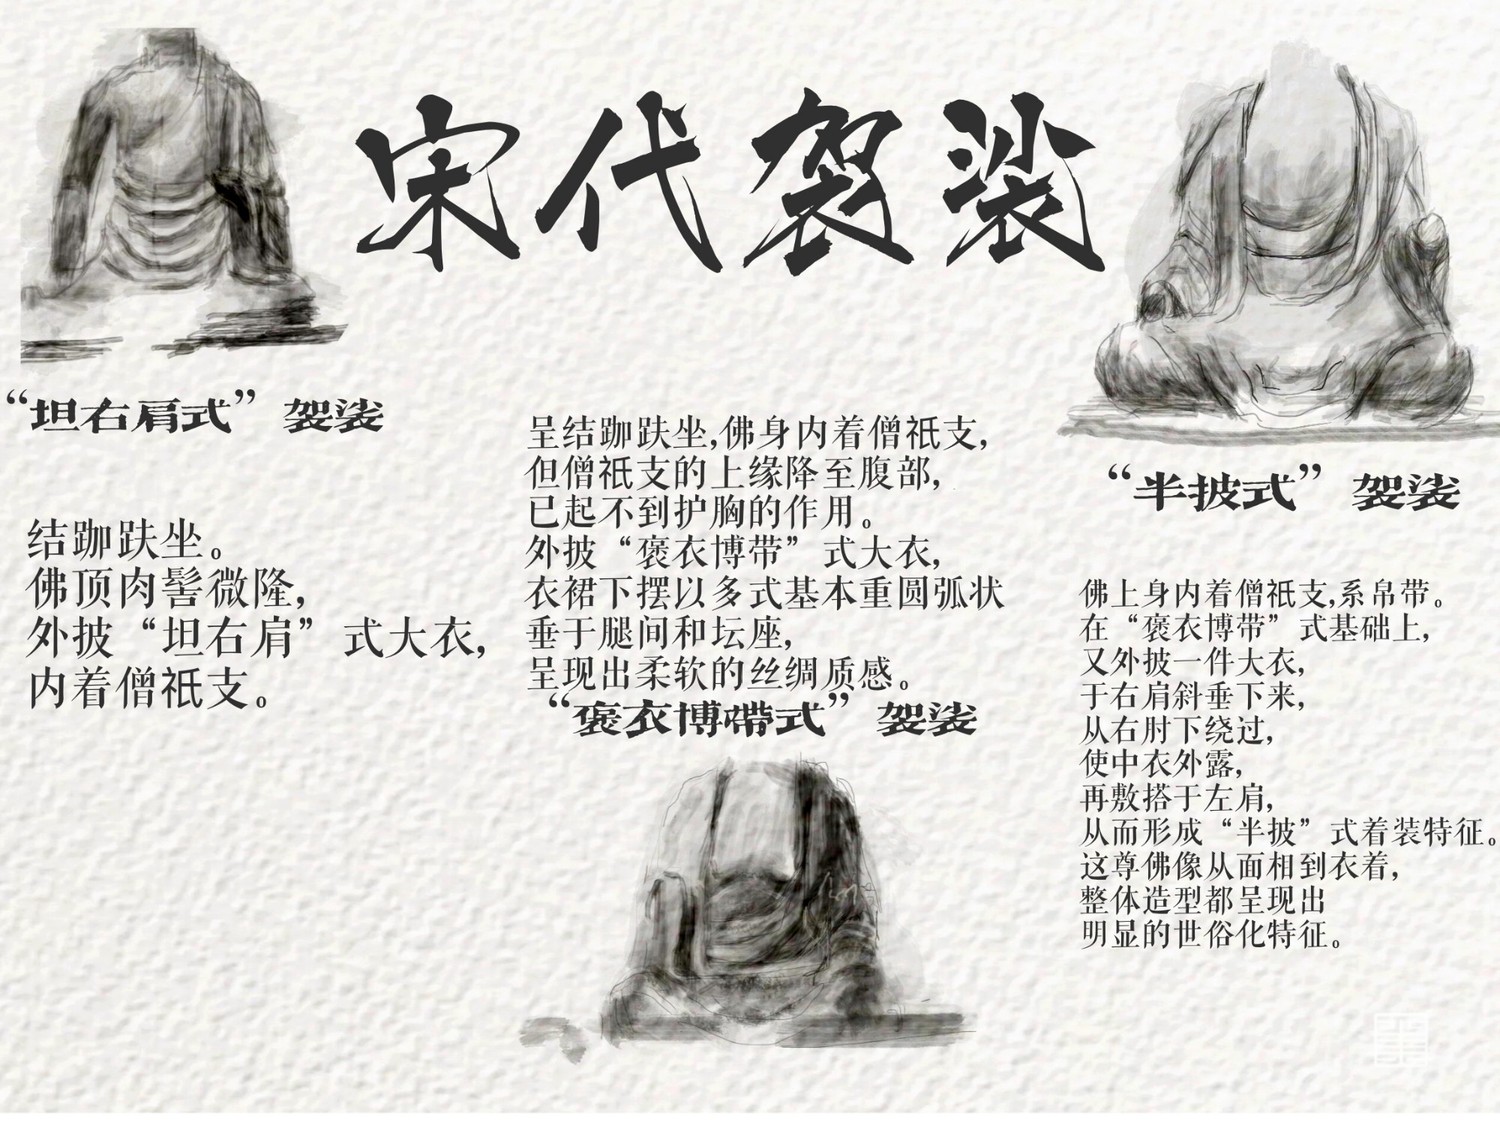 宋代袈裟
“坦右肩式” 袈裟
结跏趺坐。
佛顶肉髻微隆,
外披“坦右肩”式大衣,
内着僧祇支。
呈结跏趺坐,佛身内着僧祇支,
但僧祇支的上缘降至腹部,
已起不到护胸的作用。
外披“褒衣博带”式大衣,
衣裙下摆以多式基本重圆弧状
垂于腿间和坛座,
呈现出柔软的丝绸质感。
“褒衣博带式” 袈裟
“半披式” 袈裟
佛上身内着僧祇支,系帛带。
在“褒衣博带”式基础上,
又外披一件大衣,
于右肩斜垂下来,
从右肘下绕过,
使中衣外露,
再敷搭于左肩,
从而形成“半披”式着装特征。
这尊佛像从面相到衣着,
整体造型都呈现出
明显的世俗化特征。